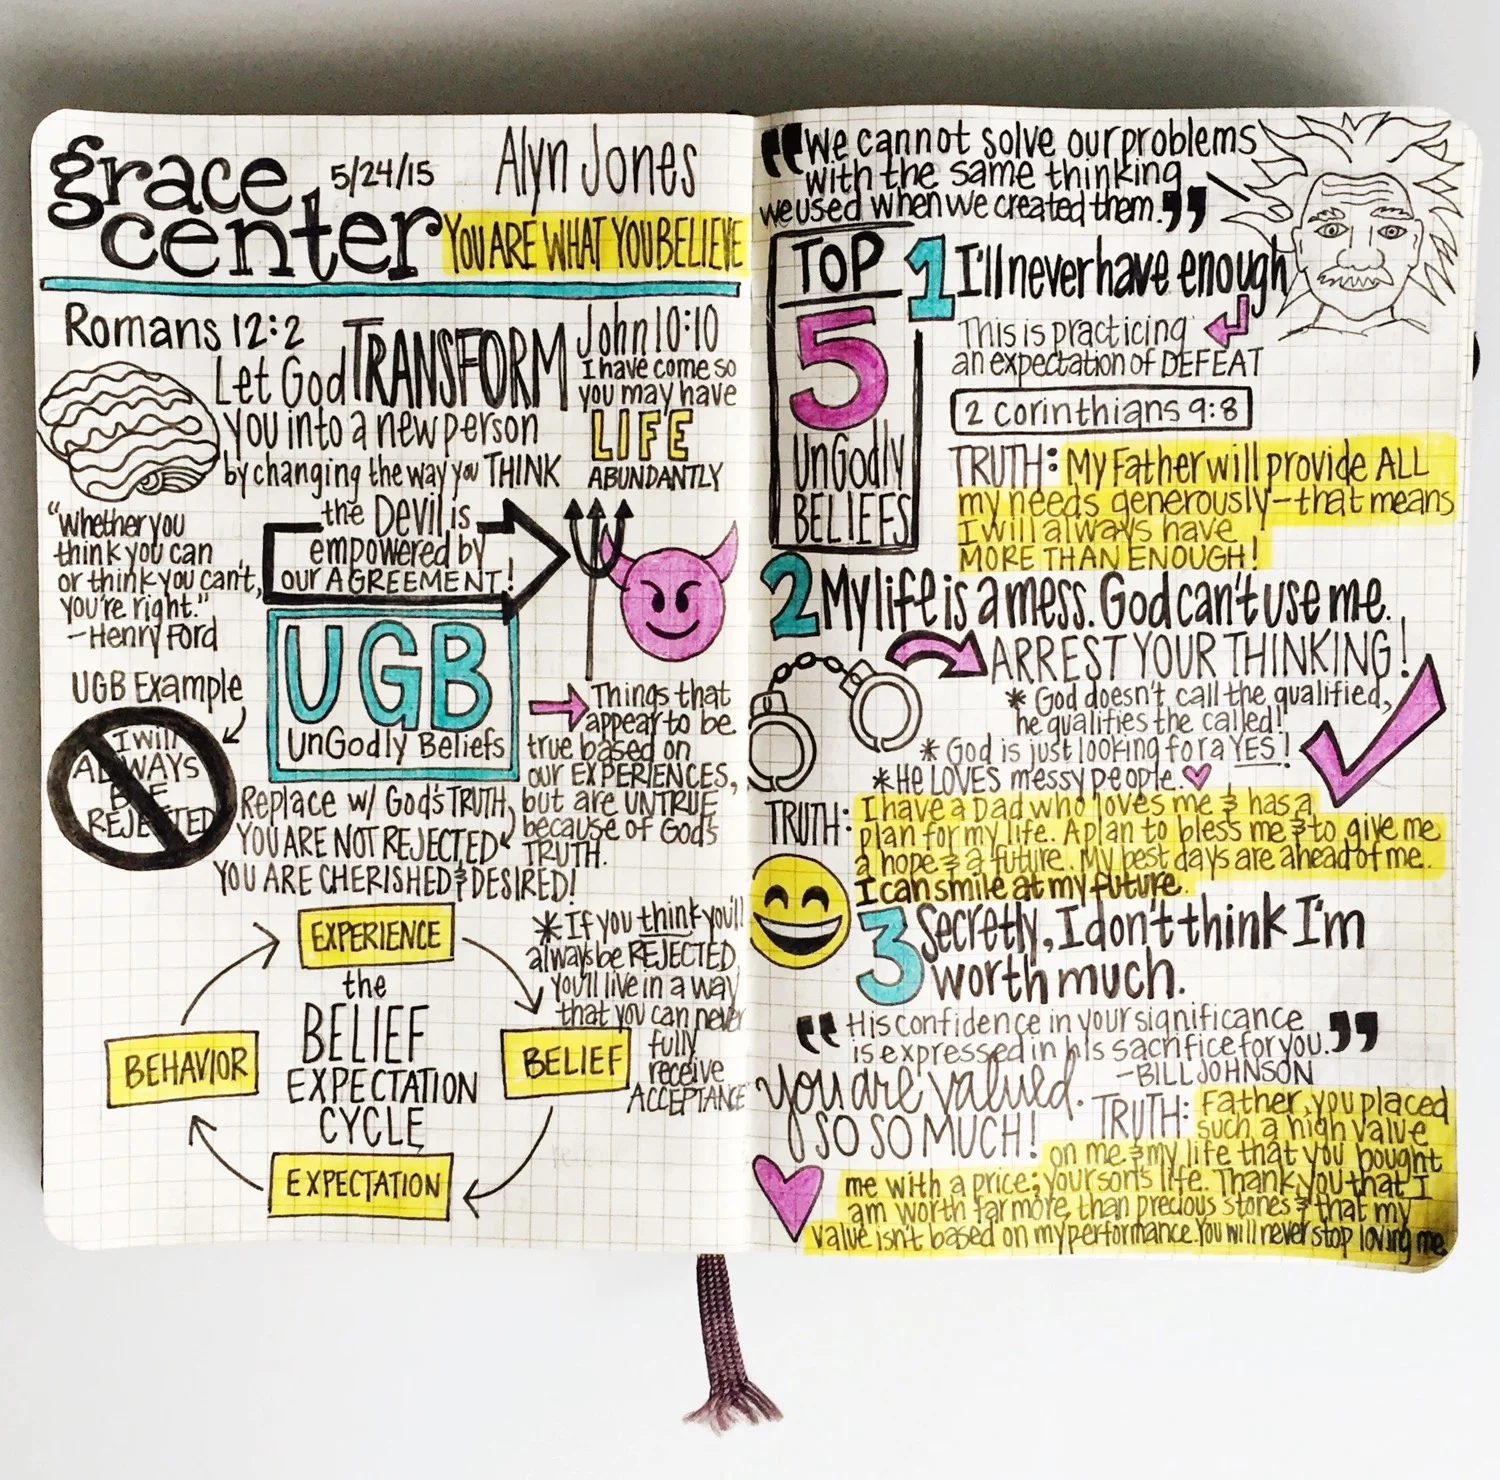 grace
center
5/24/15
Alyn Jones
YOU ARE WHAT YOU BELIEVE
Romans 12:2
Let God TRANSFORM
you into a new person
by changing the way you THINK
John 10:10
I have come so
you may have
LIFE
ABUNDANTLY
"Whether you
think you can
or think you can't,
you're right."
-Henry Ford
the Devil is
empowered by
our AGREEMENT!
UGB
UnGodly Beliefs
Things that
appear to be
true based on
our EXPERIENCES,
but are UNTRUE
because of God's
TRUTH.
UGB Example
I will
ALWAYS
BE
REJECTED
Replace w/ God's TRUTH,
YOU ARE NOT REJECTED
YOU ARE CHERISHED & DESIRED!
EXPERIENCE
the
BELIEF
EXPECTATION
CYCLE
BEHAVIOR
BELIEF
EXPECTATION
* If you think you'll
always be REJECTED
you'll live in a way
that you can never
fully
receive
ACCEPTANCE
"We cannot solve our problems
with the same thinking
we used when we created them."
TOP
5
UnGodly
BELIEFS
1 I'll never have enough
This is practicing
an expectation of DEFEAT
2 corinthians 9:8
TRUTH: My Father will provide ALL
my needs generously-that means
I will always have
MORE THAN ENOUGH!
2 My life is a mess. God can't use me.
ARREST YOUR THINKING!
* God doesn't call the qualified,
he qualifies the called!"
* God is just looking for a YES!
* HE LOVES messy people.
TRUTH: I have a Dad who loves me & has a
plan for my life. A plan to bless me & to give me
a hope & a future. My best days are ahead of me.
I can smile at my future.
3 Secretly, I don't think I'm
worth much.
"His confidence in your significance
is expressed in his sacrifice for you."
-BILL JOHNSON
you are valued.
SO SO MUCH!
TRUTH: Father, you placed
such a high value
on me & my life that you bought
me with a price; your son's life. Thank you that I
am worth far more, than precious stones & that my
value isn't based on my performance. You will never stop loving me.